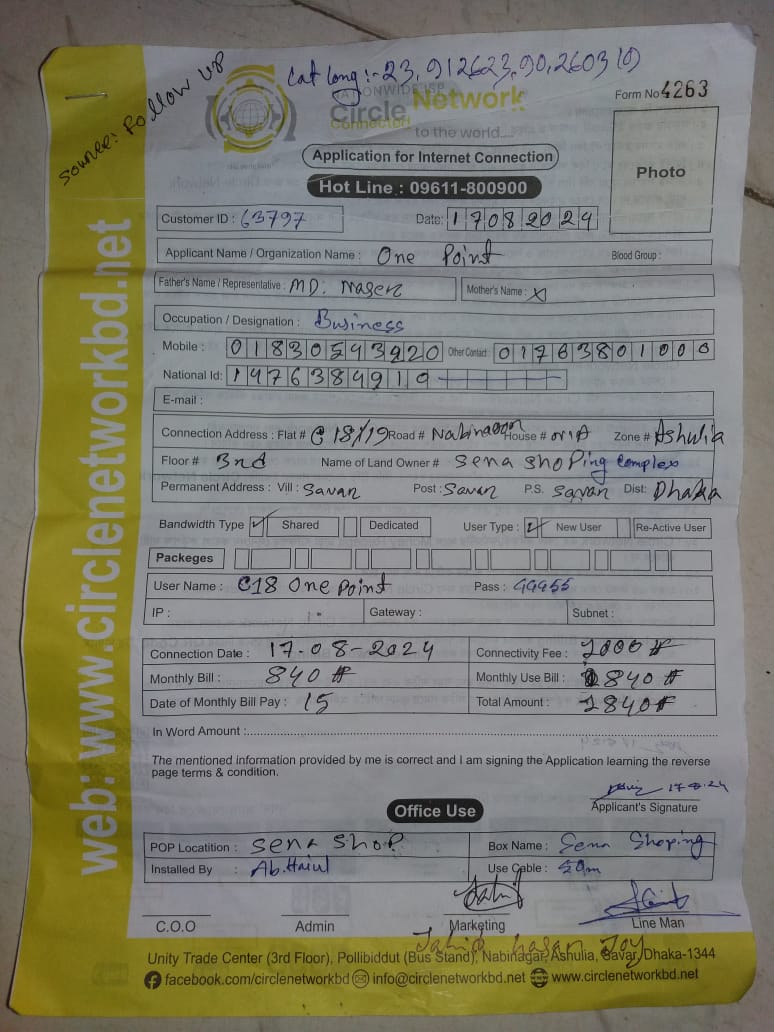 Source: Follow UP
Lat long:- 23.912623,90.260310
NATIONWIDE ISP
Circle Network
Connected to the world....
Form No 4263
Application for Internet Connection
Photo
Hot Line : 09611-800900
Customer ID : 63797 Date: 17082024
Applicant Name / Organization Name : One Point Blood Group :
Father's Name / Representative : MD. Nasen Mother's Name : X
Occupation / Designation : Business
Mobile : 01830543920 Other Contact : 01763801000
National Id: 1476384919
E-mail :
Connection Address : Flat # C 18/19 Road # Nabinagar House # Zone # Ashulia
Floor # 3rd Name of Land Owner # Sena Shoping Complex
Permanent Address : Vill : Savar Post : Savar P.S. Savar Dist: Dhaka
Bandwidth Type ✓ Shared Dedicated User Type : ✓ New User Re-Active User
Packeges
User Name : C18 One Point Pass : 44455
IP : Gateway : Subnet :
Connection Date : 17-08-2024 Connectivity Fee : 2000 #
Monthly Bill : 840 # Monthly Use Bill : 840 #
Date of Monthly Bill Pay : 15 Total Amount : 2840 #
In Word Amount :
The mentioned information provided by me is correct and I am signing the Application learning the reverse
page terms & condition.
17-8-24
Applicant's Signature
Office Use
POP Locatition : Sena Shop Box Name : Sena Shoping
Installed By : Ab. Haiul Use Cable : 50m
C.O.O Admin Marketing Line Man
Jahid Hasan Joy
Unity Trade Center (3rd Floor), Pollibiddut (Bus Stand), Nabinagar, Ashulia, Savar, Dhaka-1344
facebook.com/circlenetworkbd info@circlenetworkbd.net www.circlenetworkbd.net
web: www.circlenetworkbd.net